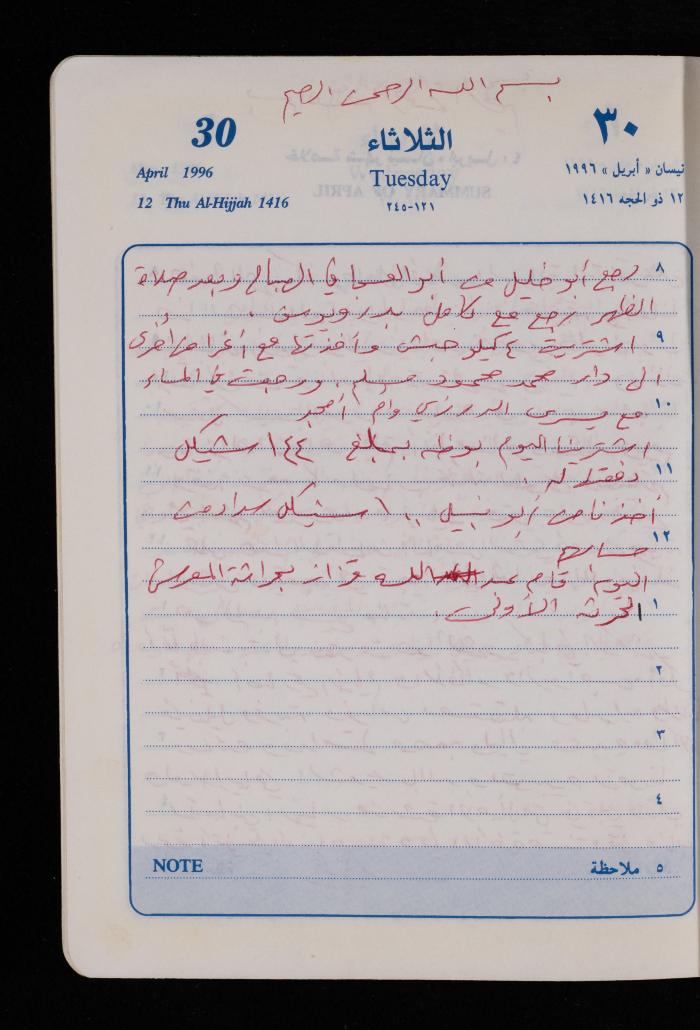 بسم الله الرحمن الرحيم
30
الثلاثاء
٣٠
April 1996
Tuesday
نيسان « أبريل » ١٩٩٦
12 Thu Al-Hijjah 1416
٢٤٥-١٢١
١٢ ذو الحجه ١٤١٦
٨ رجع أبو خليل من أبو العسجا في الصباح وبعد صلاة
الظهر رجع مع كامل بدر ويوسف .
٩ اشتريت ٤ كيلو حبش وأخذتها مع أغراض أخرى
الى دار محمد محمود مسلم . ورجعت في المساء
١٠ مع يسرى الدرزي وام أمجد
اشترينا اليوم بوظه بمبلغ ١٤٤ شيكل
١١ دفعتها له .
أخذنا من أبو نبيل ١٠٠ شيكل سداد من
١٢ حسابه
اليوم قام عبد الله قزاز بحراثة المعرش
١ الحرثه الأولى .
٢
٣
٤
NOTE
٥ ملاحظة